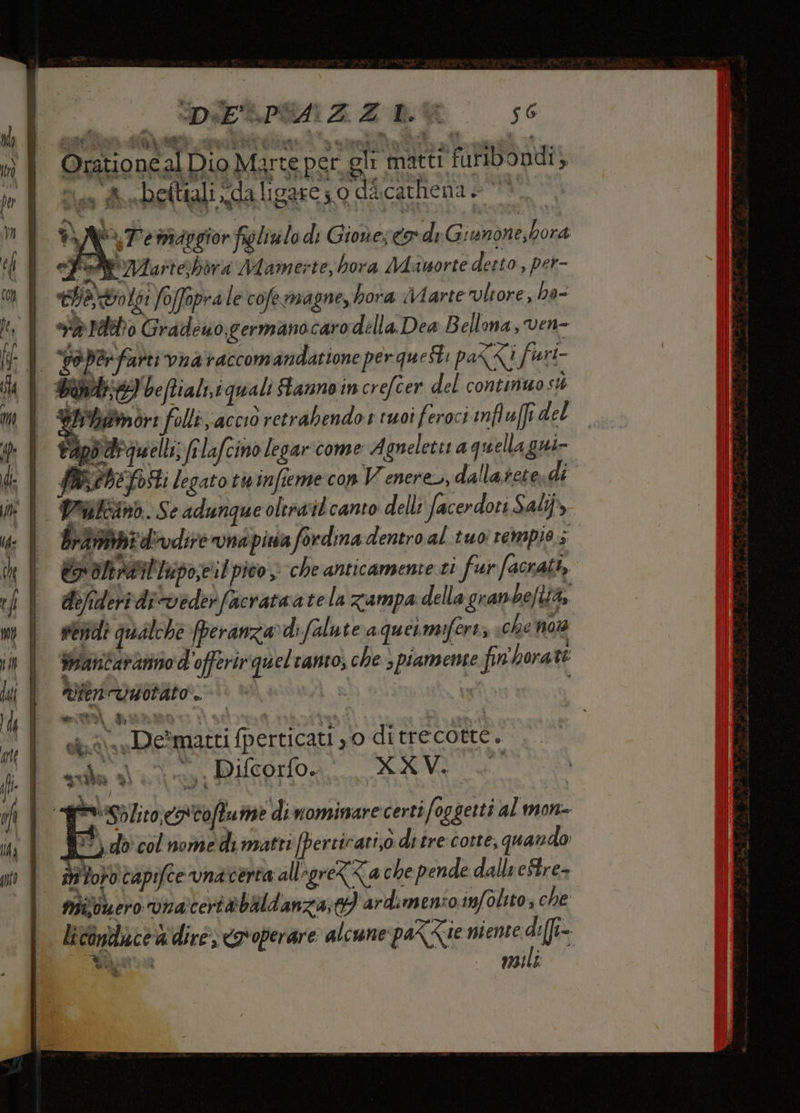 DE' PAZZI. 56
Oratione al Dio Marte per gli matti furibondi,
& bestiali, da ligare, o da cathena.
Te maggior figliulo di Gioue, & di Giunone, hora
Marte, hora Mamerte, hora Mauorte detto, per-
che volgi sossopra le cose magne, hora Marte vltore, ho-
ra Iddio Gradeuo, germano caro della Dea Bellona, ven-
go per farti vna raccomandatione per questi pazzi furi-
bondi, & bestiali, i quali stanno in crescer del continuo sù
gli humori folli, acciò retrahendo i tuoi feroci influssi del
capo di quelli, si lascino legar come Agneletti a quella gui-
sa, che fosti legato tu insieme con Venere, dalla rete di
Vulcano. Se adunque oltra il canto delli sacerdoti Salij,
brammi d'vdire vna piua sordina dentro al tuo tempio;
& oltra il lupo, e il pico, che anticamente ti fur sacrati,
desideri di veder sacrata a te la zampa della gran bestia,
rendi qualche speranza di salute a quei miseri, che non
mancaranno d'offerir quel tanto, che piamente fin'hora ti
vien vuotato.
De' matti sperticati, o di tre cotte.
Discorso. XXV.
Solito, & costume di nominare certi soggetti al mon-
do col nome di matti sperticati, ò di tre cotte, quando
in loro capisce vna certa allegrezza che pende dall'estre-
mi, ouero vna certa baldanza, & ardimento insolito, che
li conduce a dire, & operare alcune pazzie niente dissi-
mili